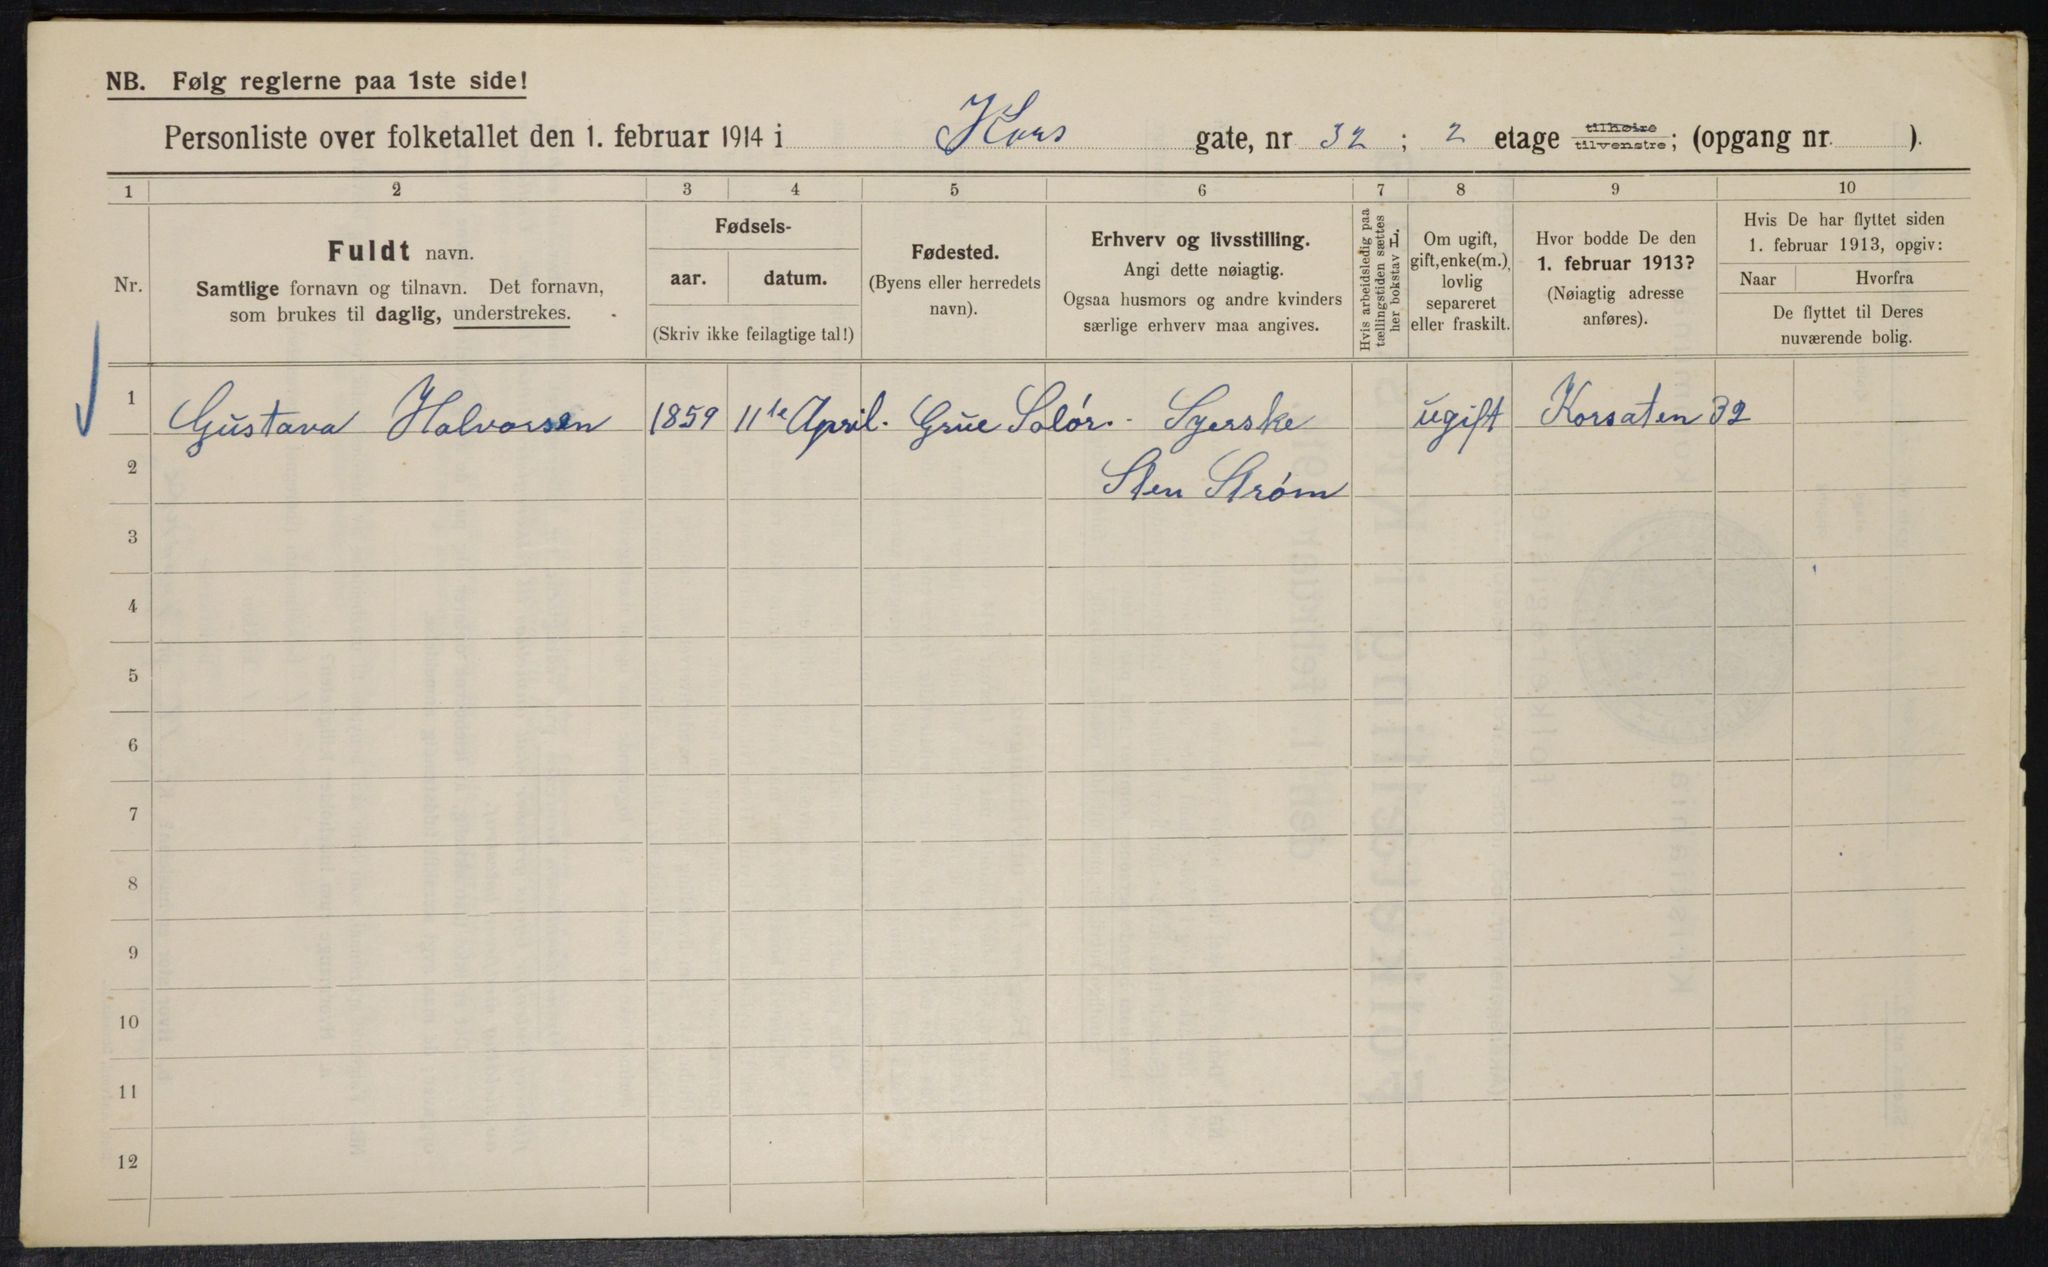 NB. Følg reglerne paa 1ste side!
Personliste over folketallet den 1. februar 1914 i Kors gate, nr 32 ; 2 etage tilhøire tilvenstre; (opgang nr. ).
1 2 3 4 5 6 7 8 9 10
Nr.
Fuldt navn.
Samtlige fornavn og tilnavn. Det fornavn,
som brukes til daglig, understrekes.
Fødsels-
aar. datum.
(Skriv ikke feilagtige tal!)
Fødested.
(Byens eller herredets
navn).
Erhverv og livsstilling.
Angi dette nøiagtig.
Ogsaa husmors og andre kvinders
særlige erhverv maa angives.
Hvis arbeidsledig paa
tællingstiden sættes
her bokstav L.
Om ugift,
gift, enke(m.),
lovlig
separeret
eller fraskilt.
Hvor bodde De den
1. februar 1913?
(Nøiagtig adresse
anføres).
Hvis De har flyttet siden
1. februar 1913, opgiv:
Naar Hvorfra
De flyttet til Deres
nuværende bolig.
1 Gustava Halvorsen 1859 11te April. Grue Solør. Syerske ugift Korsgaten 32
2 Sten Strøm
3
4
5
6
7
8
9
10
11
12